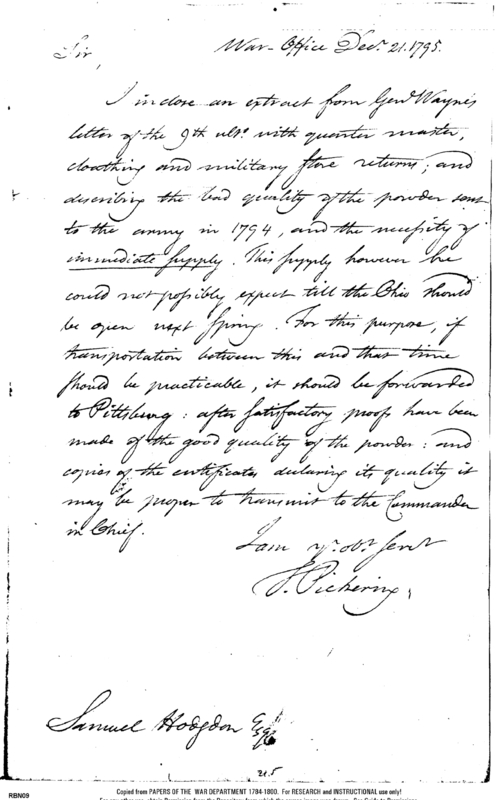 War-Office Decr. 21. 1795.
Sir,
I inclose an extract from Genl Wayne's
letter of the 9th ulto. with quarter master,
cloathing and military store returns; and
describing the bad quality of the powder sent
to the army in 1794, and the necessity of
immediate supply. This supply however he
could not possibly expect till the Ohio should
be open next spring. For this purpose, if
transportation between this and that time
should be practicable, it should be forwarded
to Pittsburg: after satisfactory proofs have been
made of the good quality of the powder: and
copies of the certificates declaring its quality it
may be proper to transmit to the Commander
in Chief.
I am yr. obt. servt
T. Pickering,
Samuel Hodgdon Esqr
215
Copied from PAPERS OF THE WAR DEPARTMENT 1784-1800. For RESEARCH and INSTRUCTIONAL use only!
RBN09